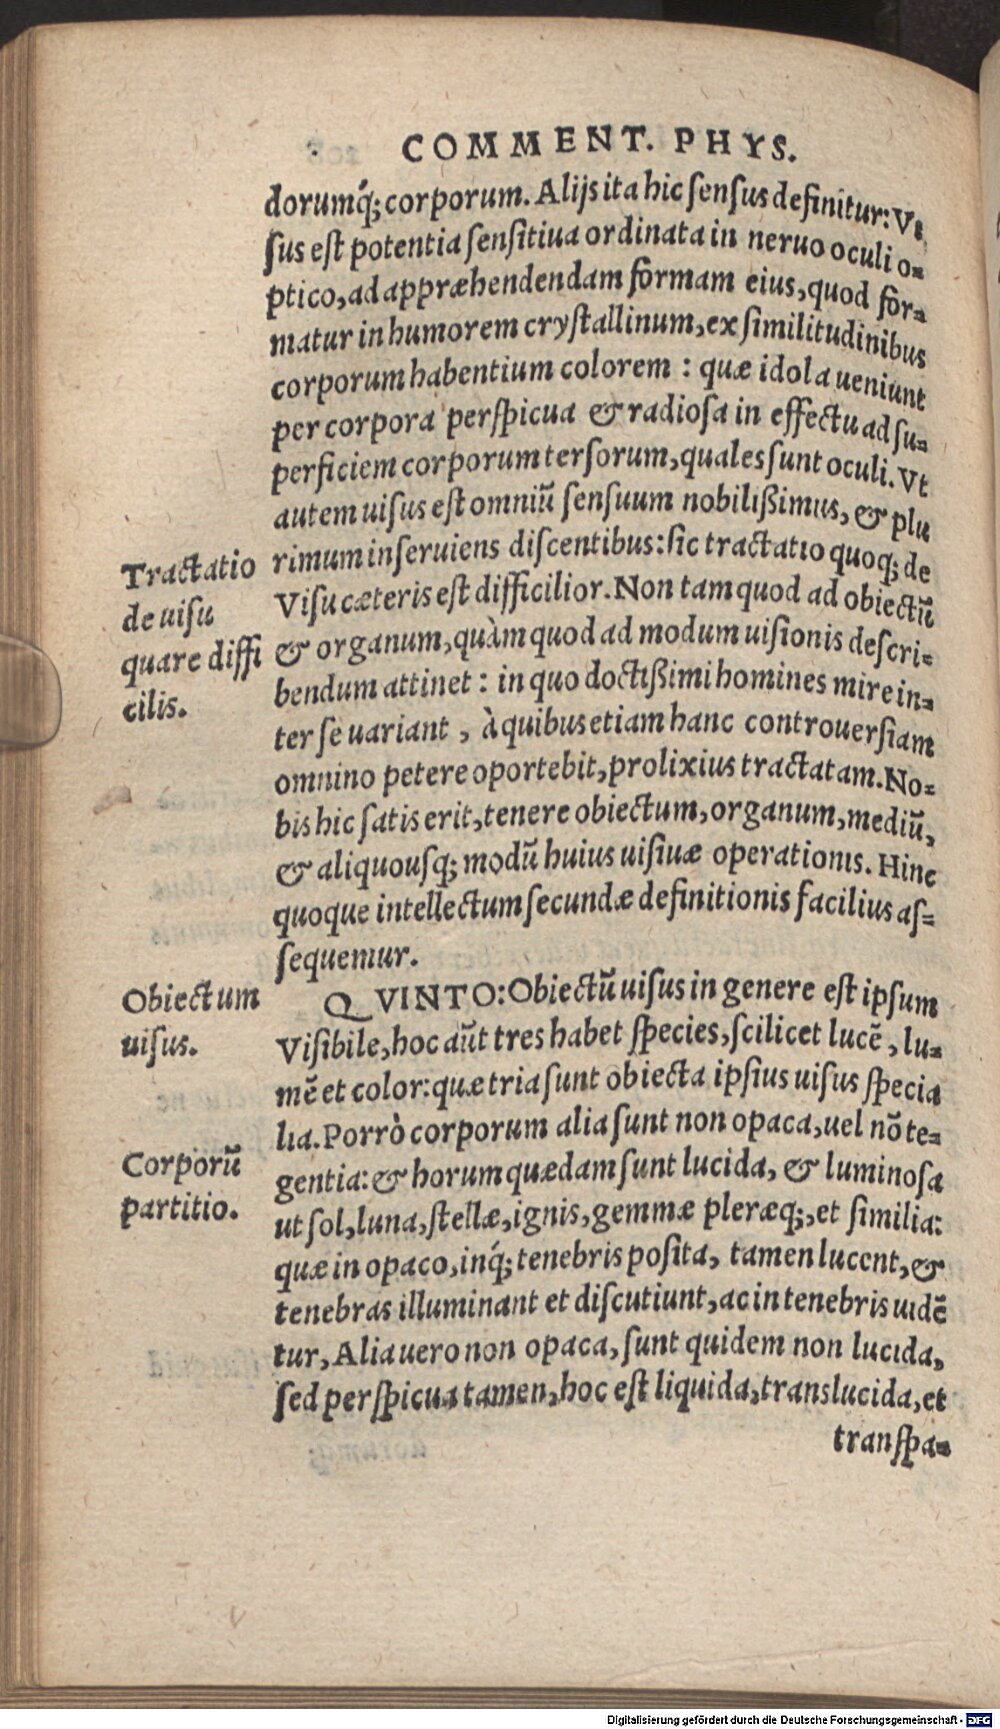 COMMENT. PHYS.
dorumq́; corporum. Alijs ita hic ſenſus definitur: Vi
ſus eſt potentia ſenſitiua ordinata in neruo oculi o=
ptico, ad appræhendendam formam eius, quod for=
matur in humorem cryſtallinum, ex ſimilitudinibus
corporum habentium colorem : quæ idola ueniunt
per corpora perſpicua & radioſa in effectu ad ſu=
perficiem corporum terſorum, quales ſunt oculi. Vt
autem uiſus eſt omniũ ſenſuum nobilißimus, & plu
rimum inſeruiens diſcentibus: ſic tractatio quoq; de
Viſu cæteris eſt difficilior. Non tam quod ad obiectũ
& organum, quàm quod ad modum uiſionis deſcri=
bendum attinet : in quo doctißimi homines mire in=
ter ſe uariant, à quibus etiam hanc controuerſiam
omnino petere oportebit, prolixius tractatam. No=
bis hic ſatis erit, tenere obiectum, organum, mediũ,
& aliquouſq; modũ huius uiſiuæ operationis. Hinc
quoque intellectum ſecundæ definitionis facilius aſ=
ſequemur.
Tractatio
de uiſu
quare diffi
cilis.
QVINTO: Obiectũ uiſus in genere eſt ipſum
Viſibile, hoc aũt tres habet ſpecies, ſcilicet lucẽ, lu=
mẽ et color: quæ tria ſunt obiecta ipſius uiſus ſpecia
lia. Porrò corporum alia ſunt non opaca, uel nõ te=
gentia: & horum quædam ſunt lucida, & luminoſa
ut ſol, luna, ſtellæ, ignis, gemmæ pleræq;, et ſimilia:
quæ in opaco, inq́; tenebris poſita, tamen lucent, &
tenebras illuminant et diſcutiunt, ac in tenebris uidẽ
tur, Alia uero non opaca, ſunt quidem non lucida,
ſed perſpicua tamen, hoc eſt liquida, translucida, et
tranſpa=
Obiectum
uiſus.
Corporũ
partitio.
Digitalisierung gefördert durch die Deutsche Forschungsgemeinschaft - DFG